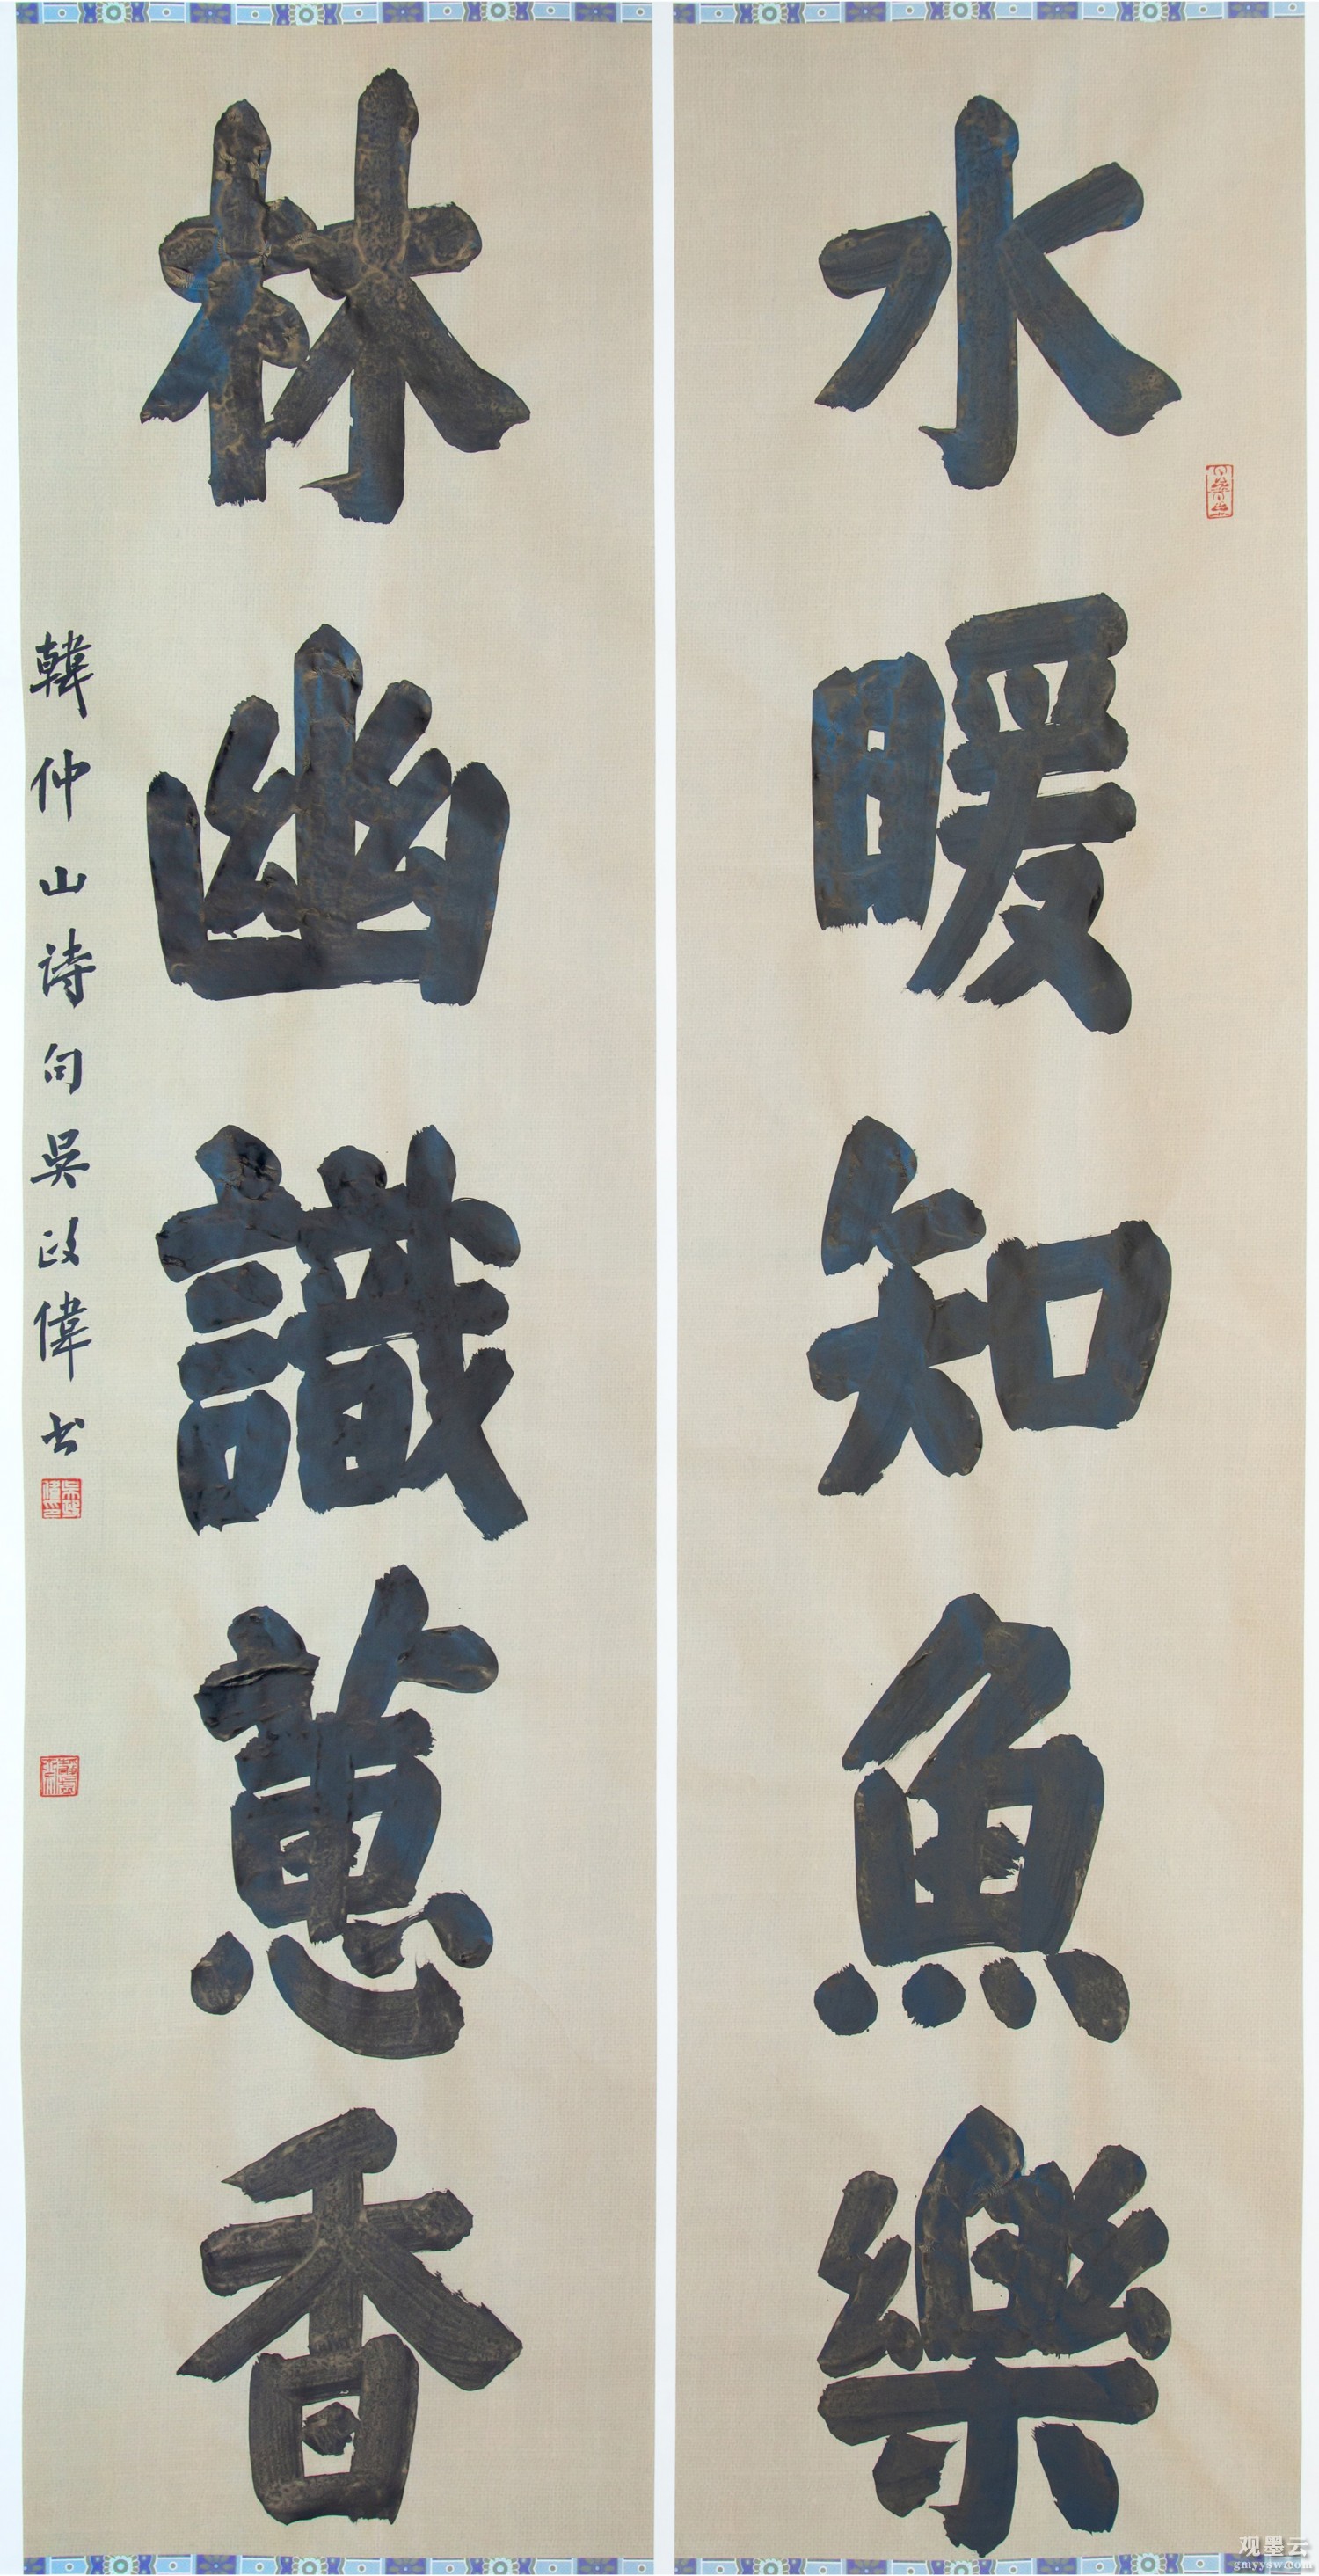 水暖知魚樂
林幽識蕙香
韓仲山詩句吴政偉书
观墨云
gmyysw.com